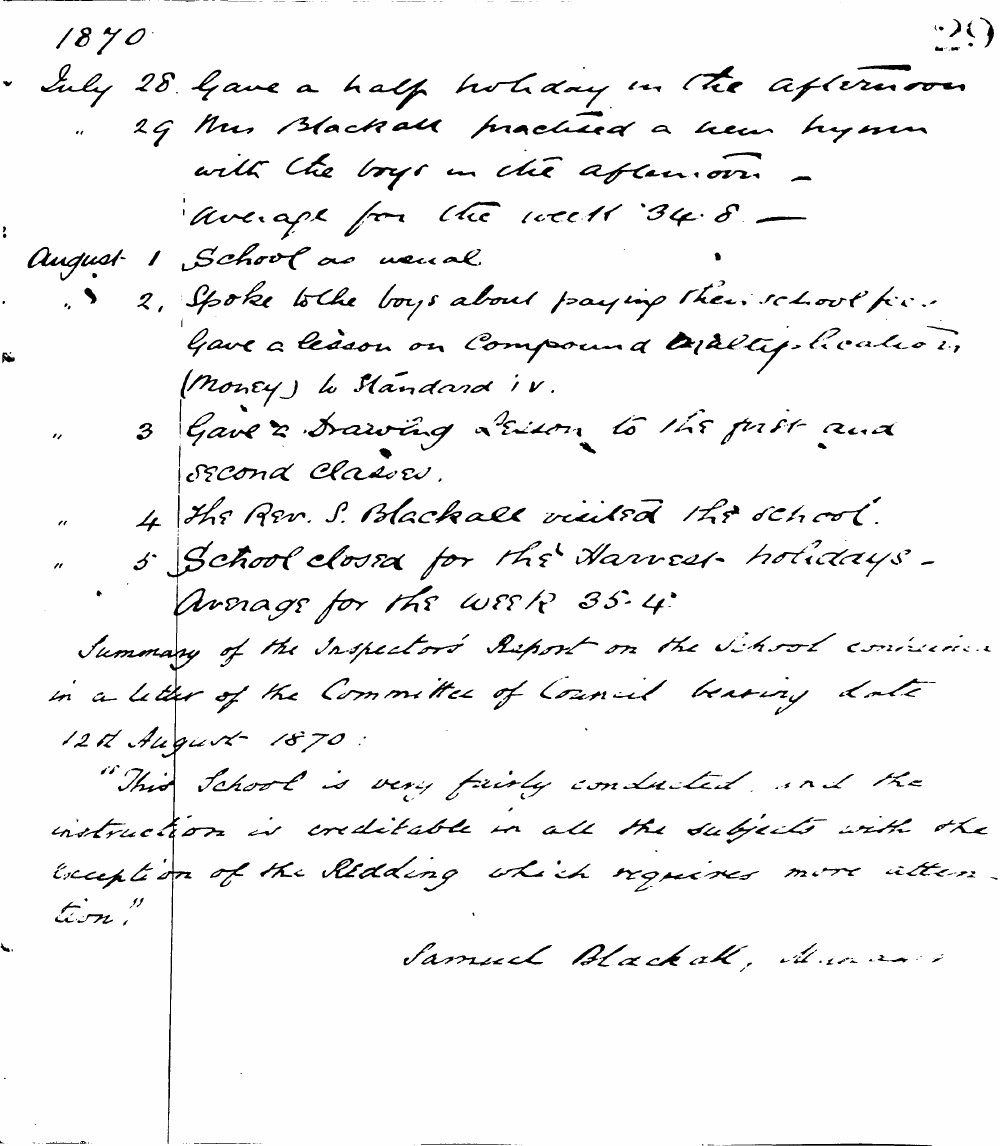 1870
29
July 28. Gave a half holiday in the afternoon
" 29 Mrs Blackall practised a new hymn
with the boys in the afternoon —
Average for the week 34.8 —
August 1 School as usual
" 2, Spoke to the boys about paying their school
Gave a lesson on Compound Multiplication
(Money) to Standard iv.
" 3 Gave a Drawing Lesson to the first and
second classes.
" 4 The Rev. S. Blackall visited the school.
" 5 School closed for the Harvest holidays -
Average for the week 35.4
Summary of the Inspector's Report on the School
in a letter of the Committee of Council bearing date
12th August 1870:
"This School is very fairly conducted and the
instruction is creditable in all the subjects with the
exception of the Reading which requires more atten-
tion."
Samuel Blackall,